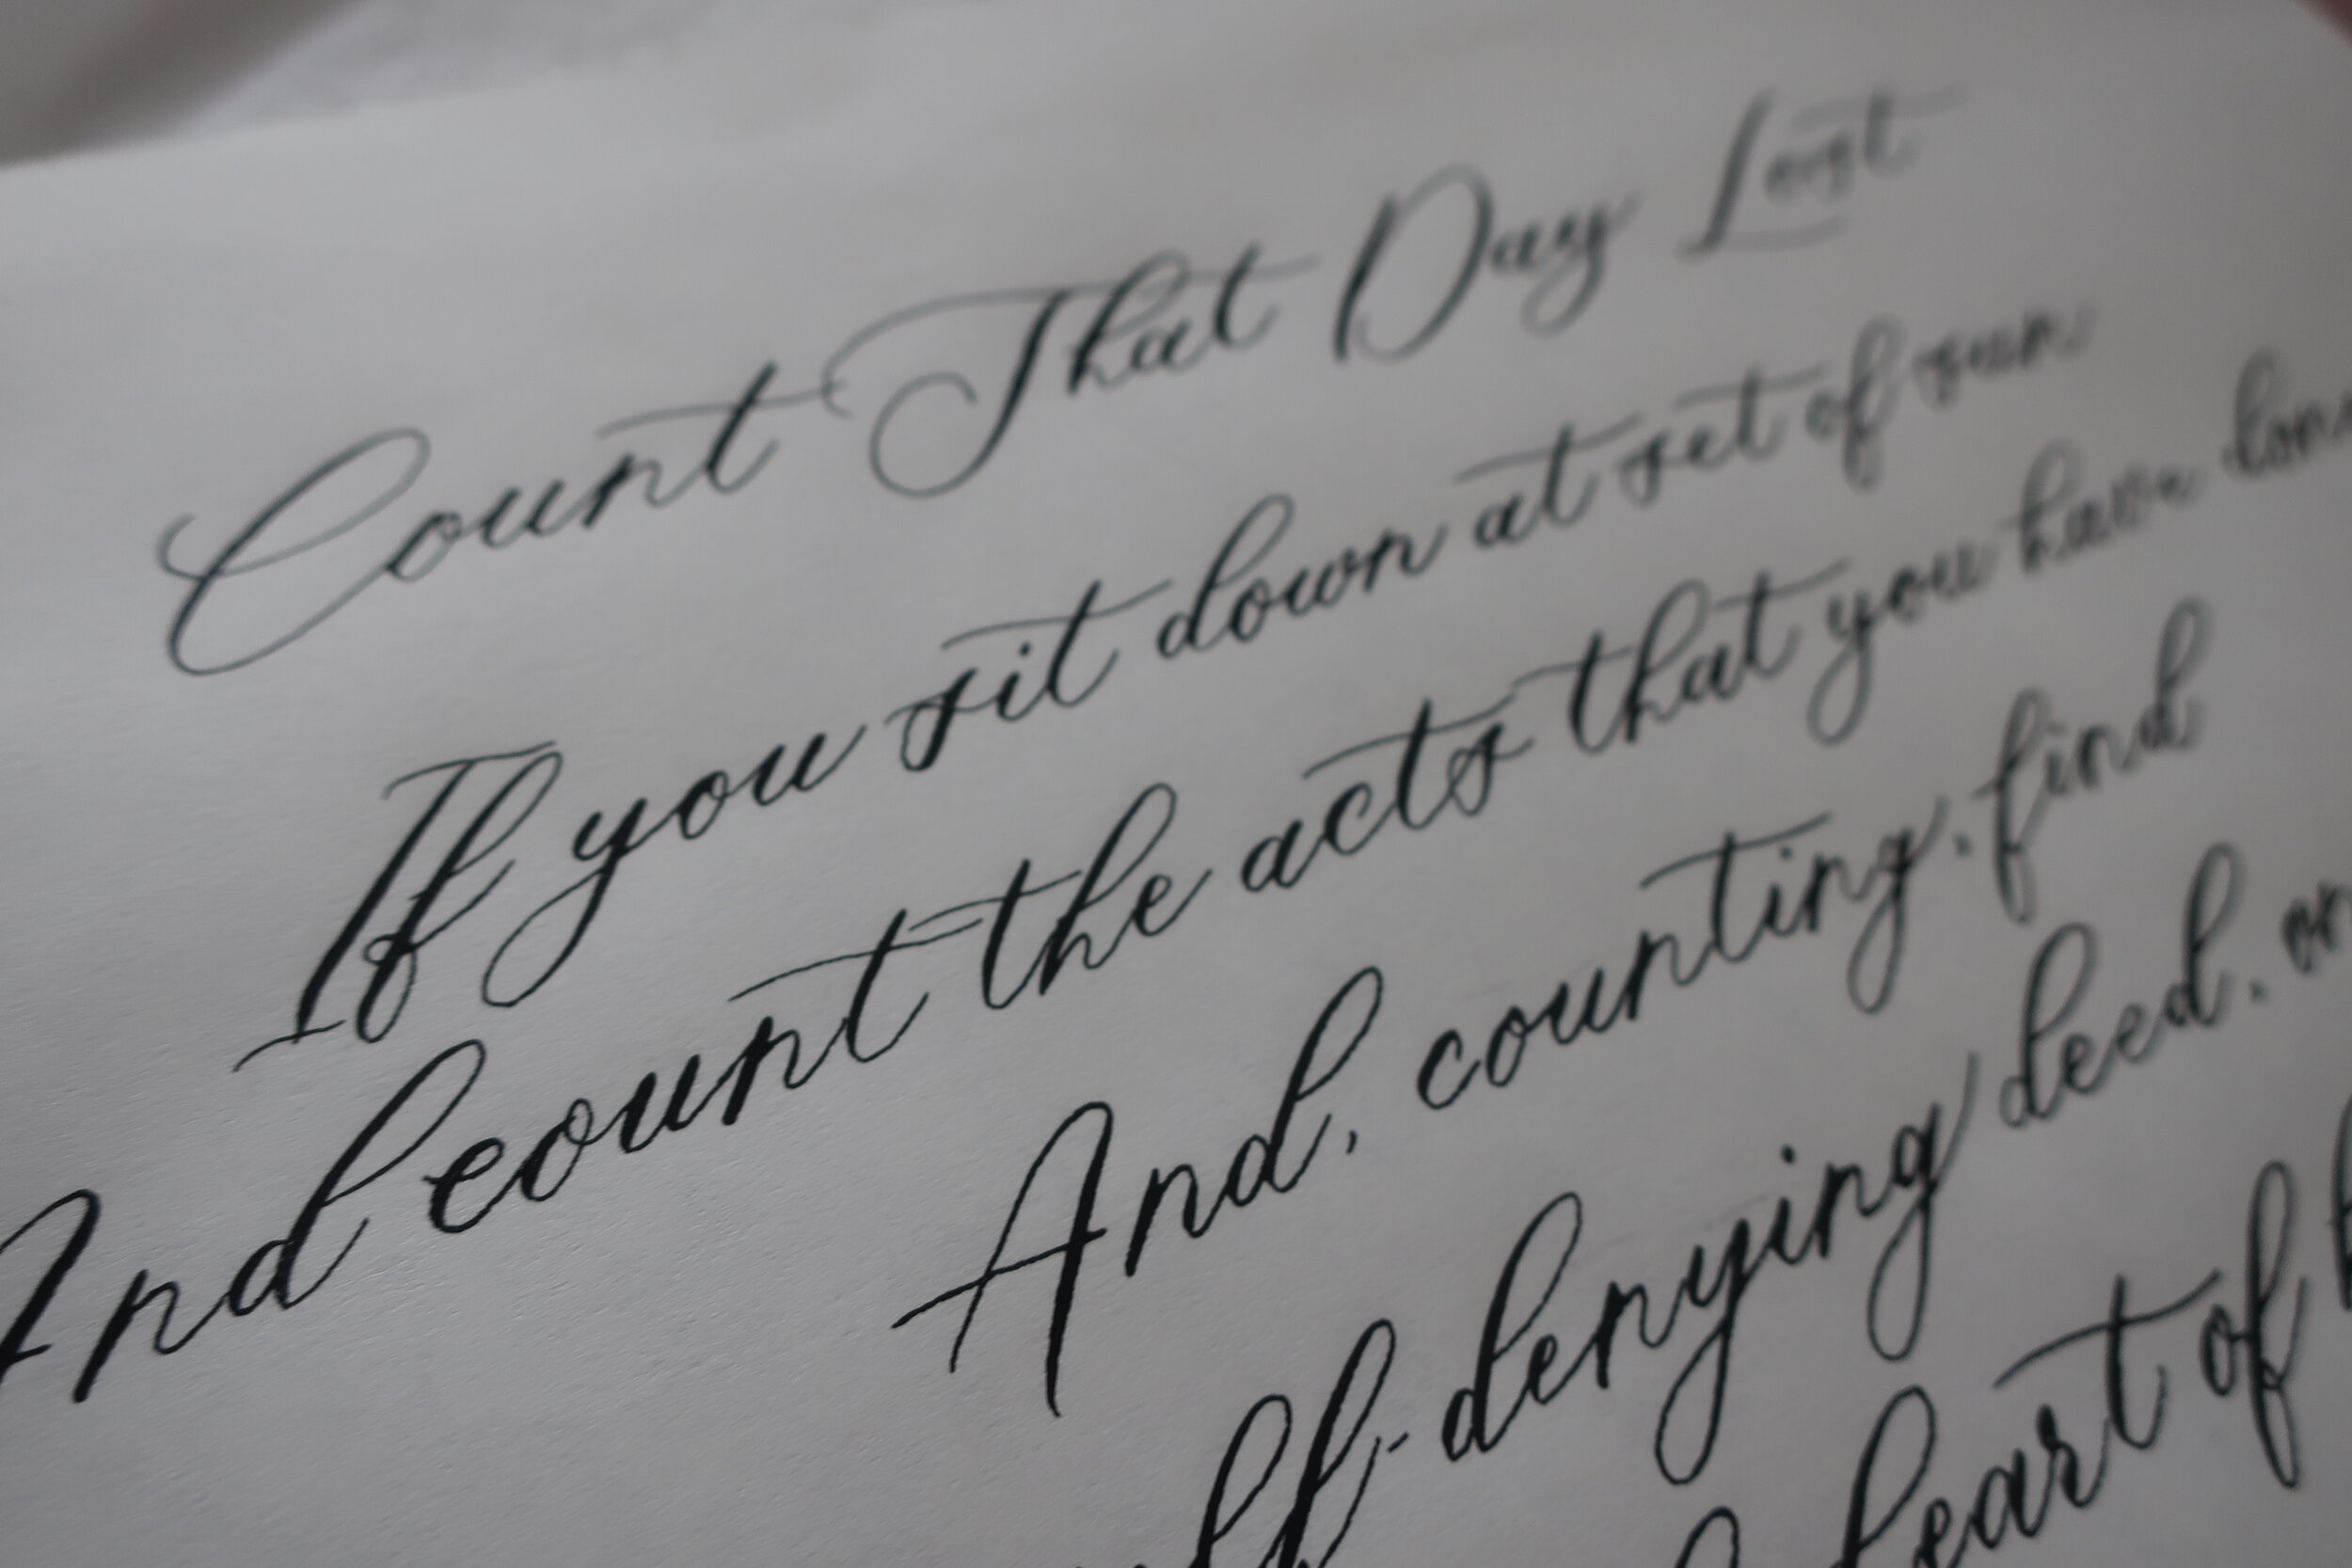 Count That Day Lost
If you sit down at set of sun
And count the acts that you have
And, counting, find
denying deed, on
heart of